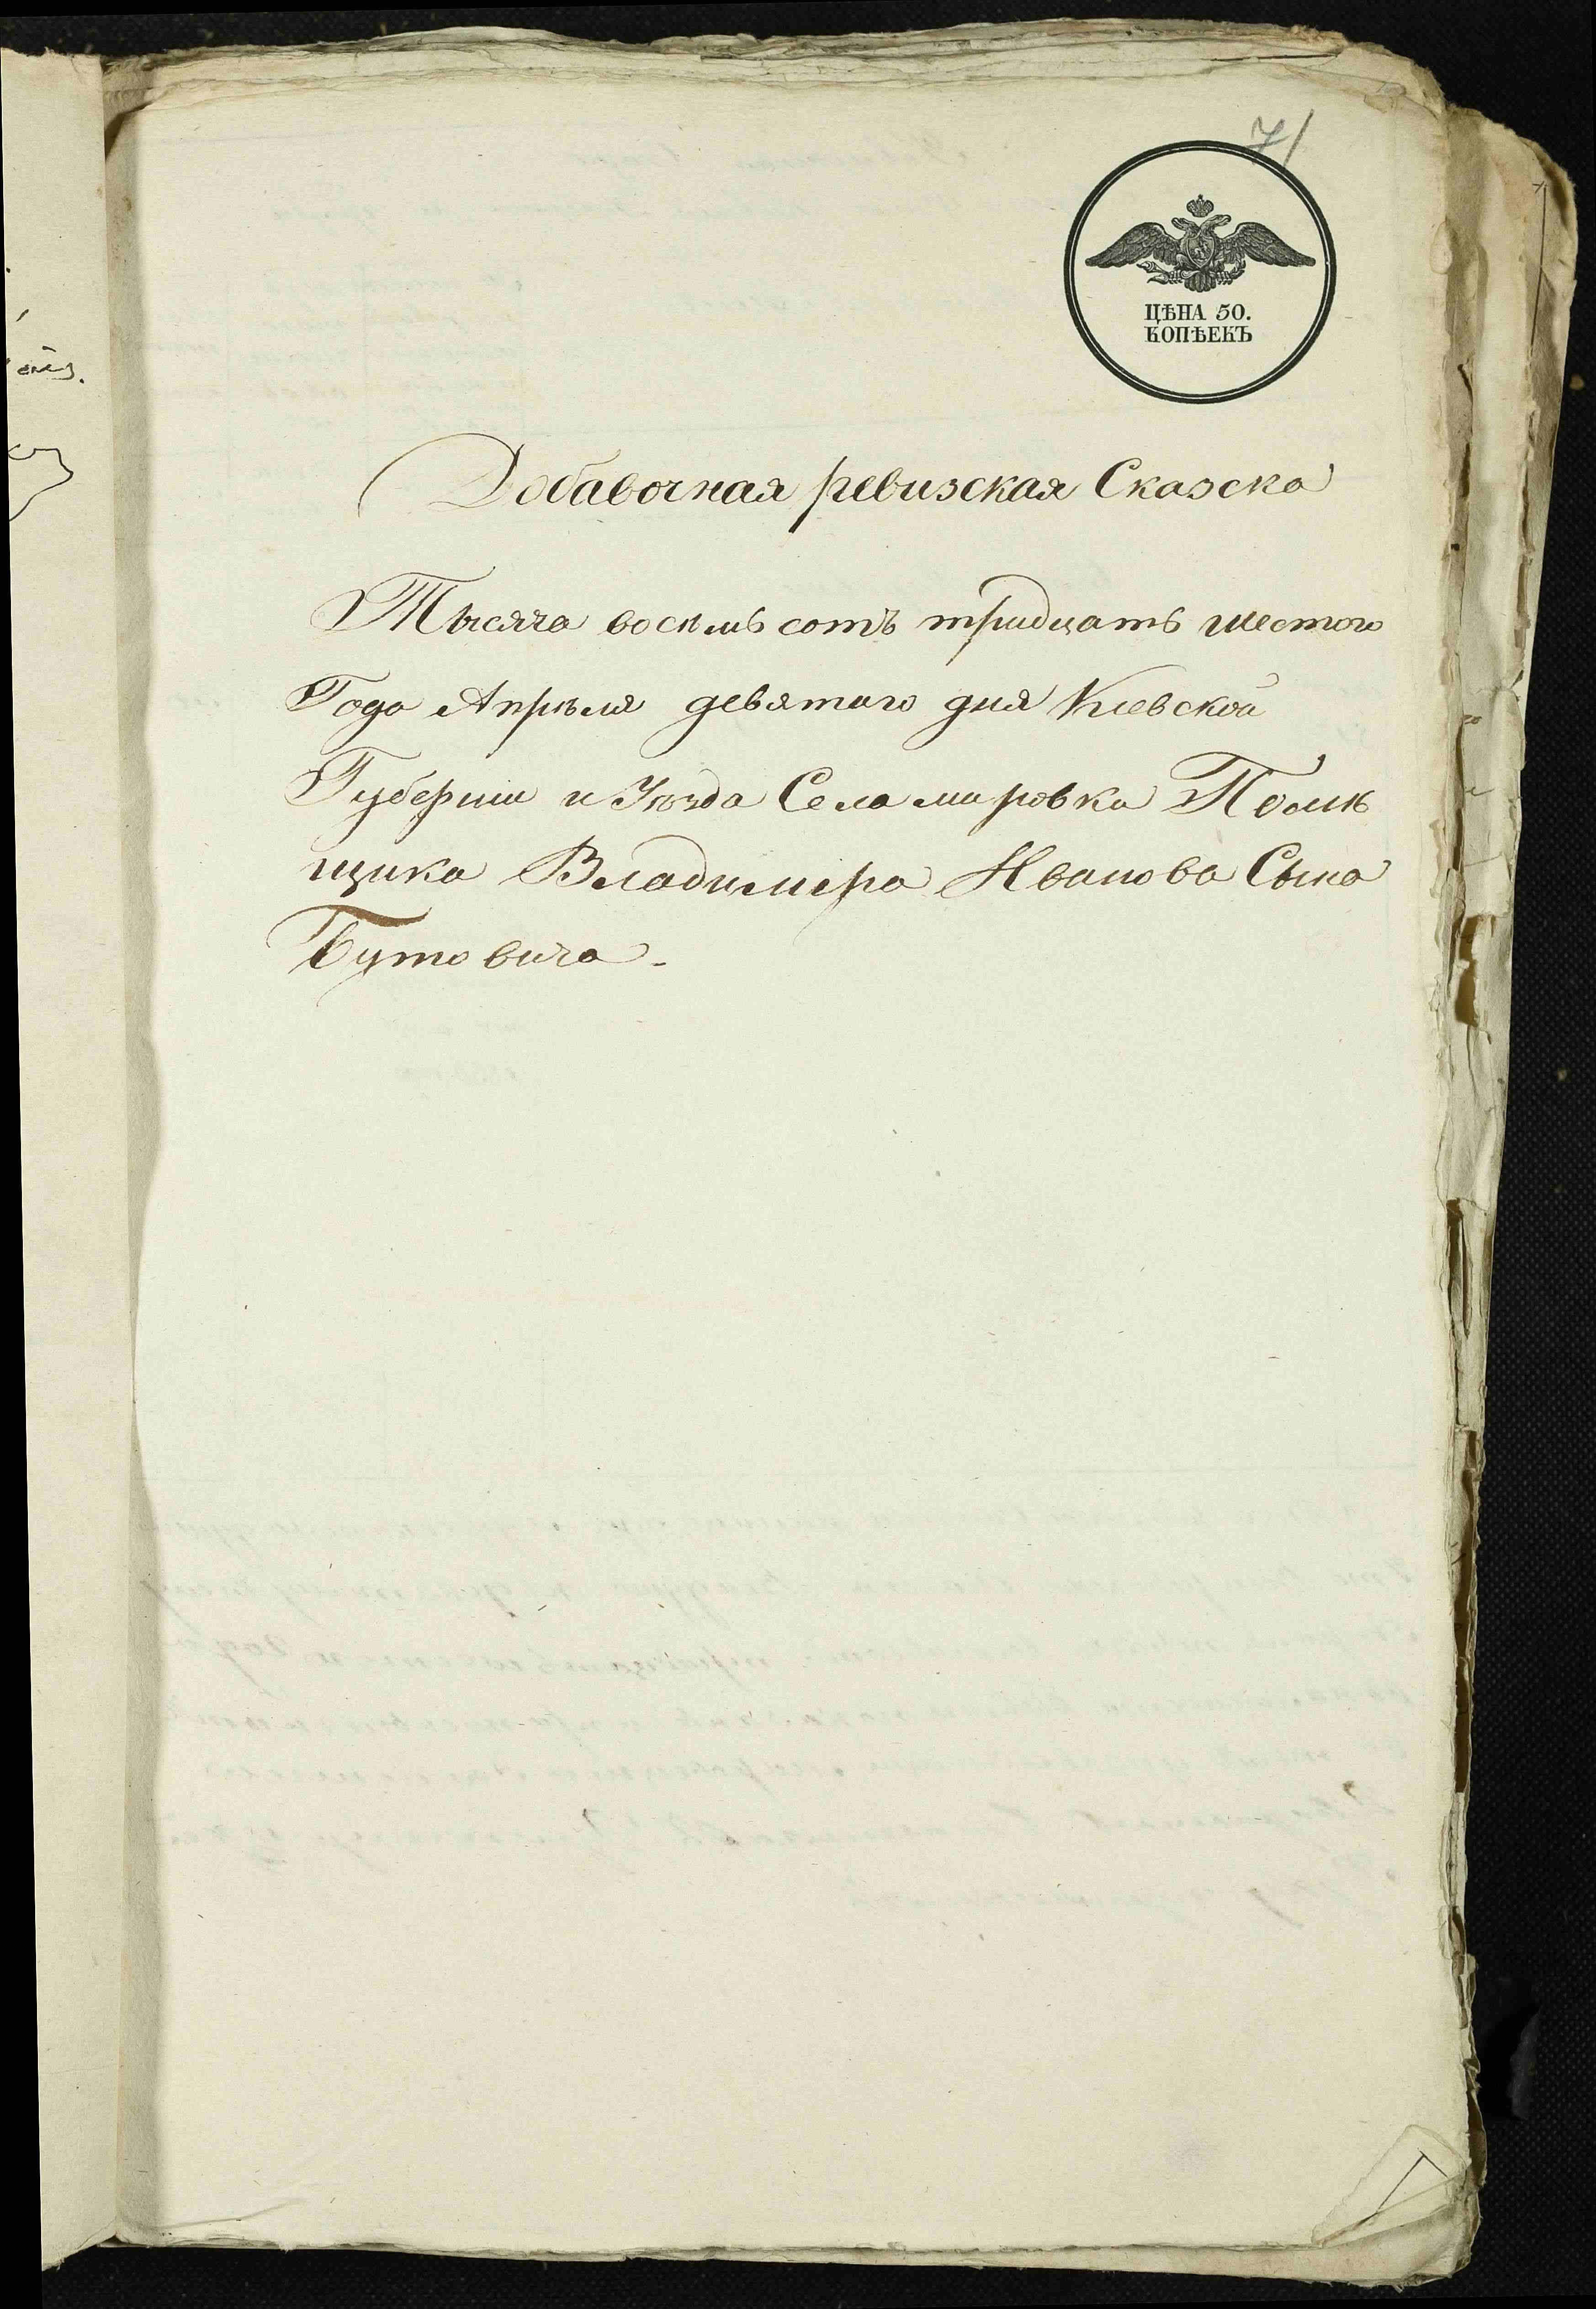 71
ЦѢНА 50.
КОПѢЕКЪ
Добавочная ревизская Сказска
Тысяча восемь сотъ тридцать шестого
Года Апрѣля девятаго дня Кіевской
Губерніи и Уѣзда Села мировка Помѣ
щика Владимера Иванова Сына
Бутовича -